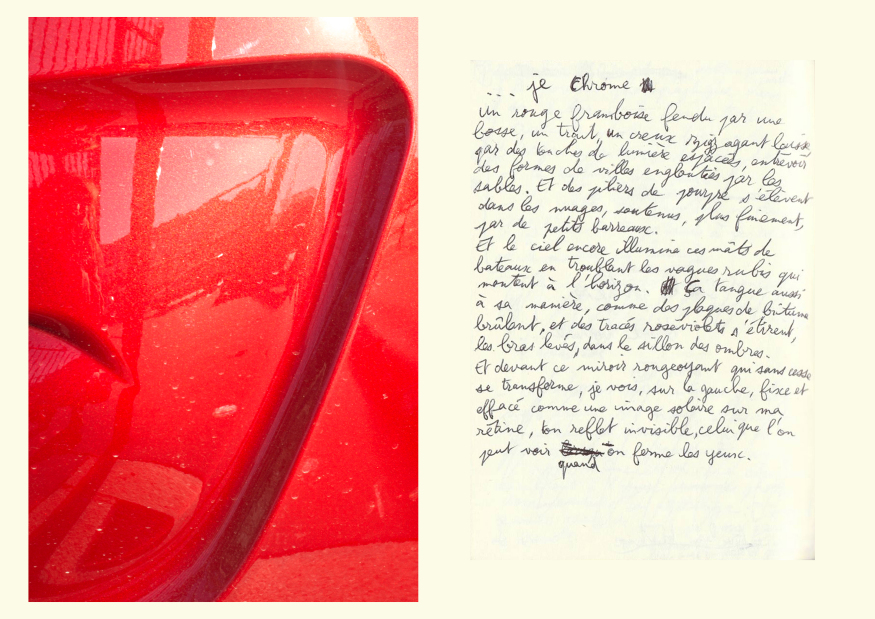 ... je Chrome
Un rouge framboise fendu par une
bosse, un trait, un creux zigzagant laisse
par des touches de lumière espacées, entrevoir
des formes de villes englouties par les
sables. Et des piliers de pourpre s'élèvent
dans les nuages, soutenus, plus finement,
par de petits barreaux.
Et le ciel encore illumine ces mâts de
bateaux en troublant les vagues rubis qui
montent à l'horizon. Ça tangue aussi
à sa manière, comme des plaques de bitume
brûlant, et des tracés roseviolets s'étirent,
les bras levés, dans le sillon des ombres.
Et devant ce miroir rougeoyant qui sans cesse
se transforme, je vois, sur la gauche, fixe et
effacé comme une image solaire sur ma
rétine, ton reflet invisible, celui que l'on
peut voir on ferme les yeux.
quand